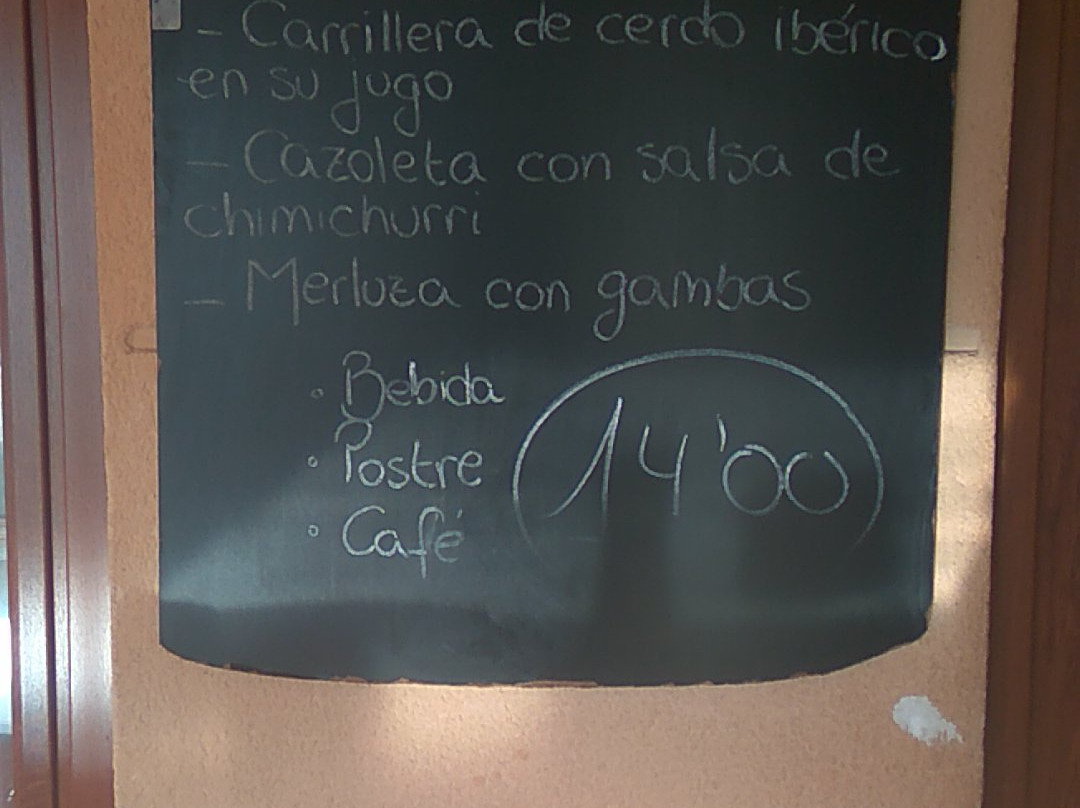 - Carrillera de cerdo ibérico
en su jugo
- Cazoleta con salsa de
chimichurri
- Merluza con gambas
· Bebida
· Postre
· Café
14'00